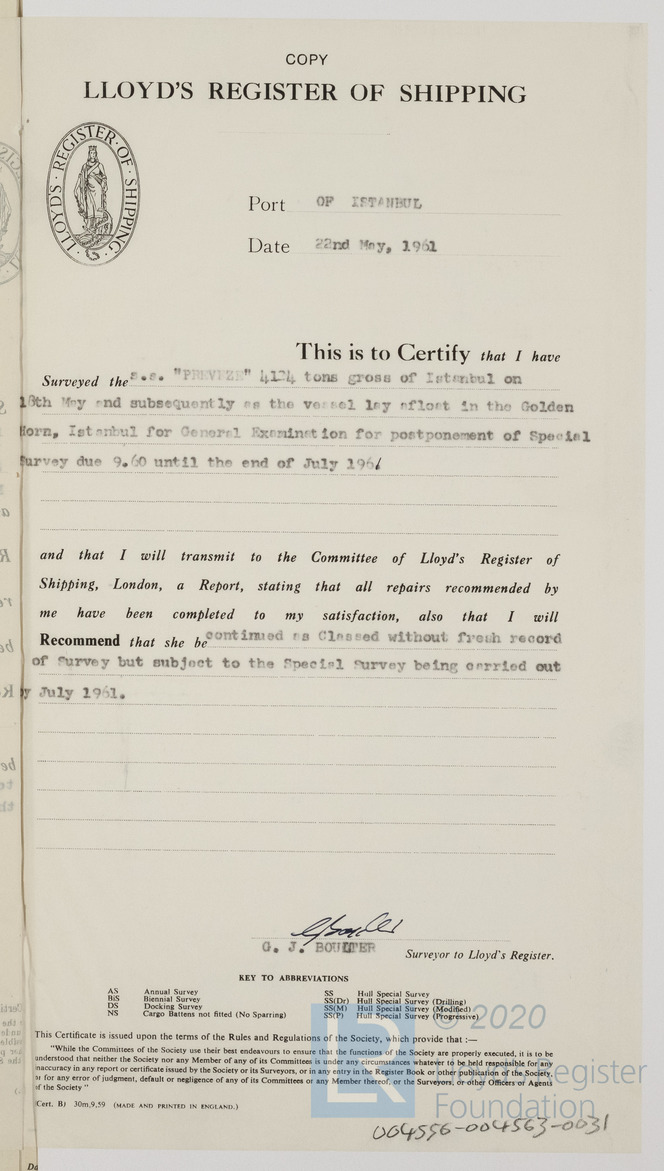 COPY
LLOYD'S REGISTER OF SHIPPING
LLOYD'S · REGISTER · OF · SHIPPING
Port OF ISTANBUL
Date 22nd May, 1961
This is to Certify that I have
Surveyed the s.s. "PREVEZE" 4124 tons gross of Istanbul on
18th May and subsequently as the vessel lay afloat in the Golden
Horn, Istanbul for General Examination for postponement of Special
Survey due 9.60 until the end of July 1961
and that I will transmit to the Committee of Lloyd's Register of
Shipping, London, a Report, stating that all repairs recommended by
me have been completed to my satisfaction, also that I will
Recommend that she be continued as Classed without fresh record
of Survey but subject to the Special Survey being carried out
by July 1961.
G. J. BOULTER Surveyor to Lloyd's Register.
KEY TO ABBREVIATIONS
AS Annual Survey SS Hull Special Survey
BiS Biennial Survey SS(Dr) Hull Special Survey (Drilling)
DS Docking Survey SS(M) Hull Special Survey (Modified)
NS Cargo Battens not fitted (No Sparring) SS(P) Hull Special Survey (Progressive)
This Certificate is issued upon the terms of the Rules and Regulations of the Society, which provide that :—
"While the Committees of the Society use their best endeavours to ensure that the functions of the Society are properly executed, it is to be
understood that neither the Society nor any Member of any of its Committees is under any circumstances whatever to be held responsible for any
inaccuracy in any report or certificate issued by the Society or its Surveyors, or in any entry in the Register Book or other publication of the Society,
or for any error of judgment, default or negligence of any of its Committees or any Member thereof, or the Surveyors, or other Officers or Agents
of the Society"
(Cert. B) 30m,9,59 (MADE AND PRINTED IN ENGLAND.)
LR
© 2020
Lloyd's Register
Foundation
004556-004563-0031